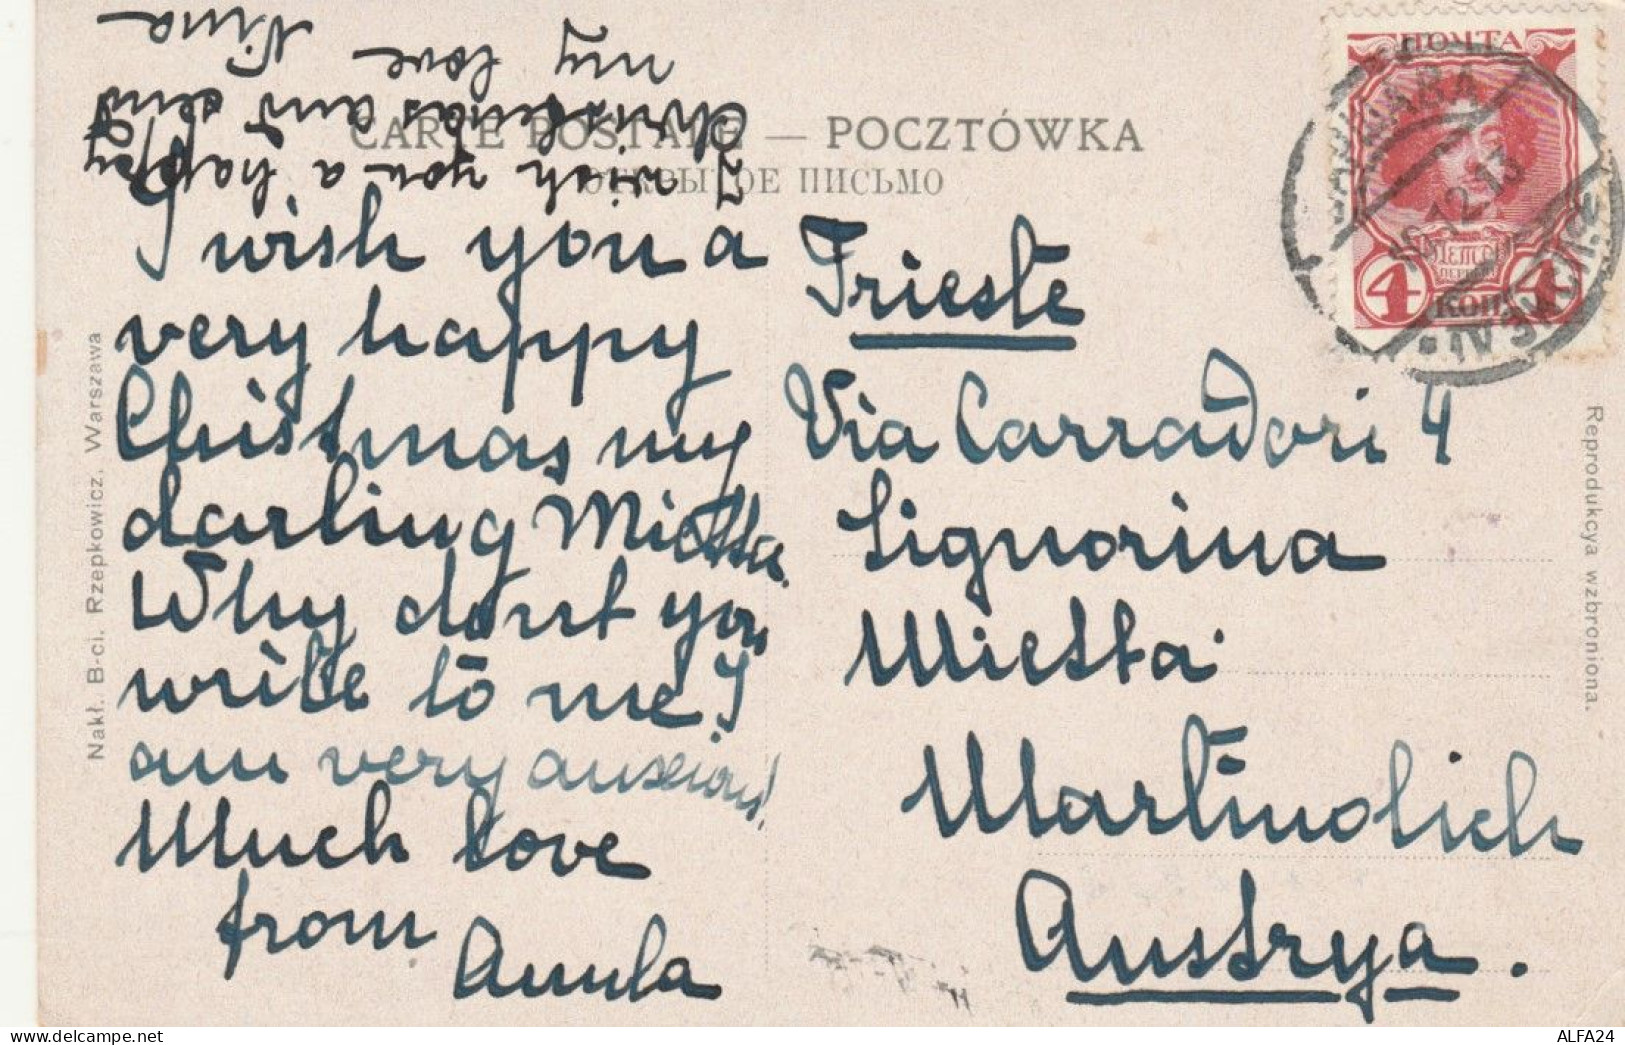 CARTE POSTALE — POCZTÓWKA
ОТКРЫТОЕ ПИСЬМО
I wish you a happy
Christmas and send
my love
Nina
I wish you a
very happy
Christmas my
darling Mietta.
Why dont you
write to me? I
am very anxious!
Much love
from
Trieste
Via Carradori 4
Signorina
Mietta
Martinolich
Austrya.
ПОЧТА
4 КОП 4
12.13
Nakł. B-ci. Rzepkowicz, Warszawa
Reprodukcya wzbroniona.
ALFA24